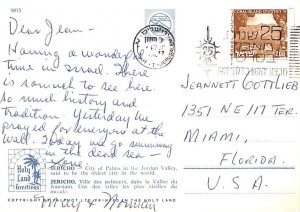 Dear Jean —
Having a wonderful
time in Israel. There
is so much to see here.
so much history and
tradition. Yesterday we
prayed for everyone at the
wall. Today we go swimming
in the dead sea —
Love
Norman
JEANNETT GOTTLIEB
1351 NE 117 TER.
MIAMI,
FLORIDA.
U.S.A.
Holy
Land
Greetings
JERICHO City of Palms in the Jordan Valley,
said to be the oldest city in the world.
JERICHO. Ville des palmiers, dans la Vallée du
Jourdain. Une des villes les plus vieilles du
monde.
25